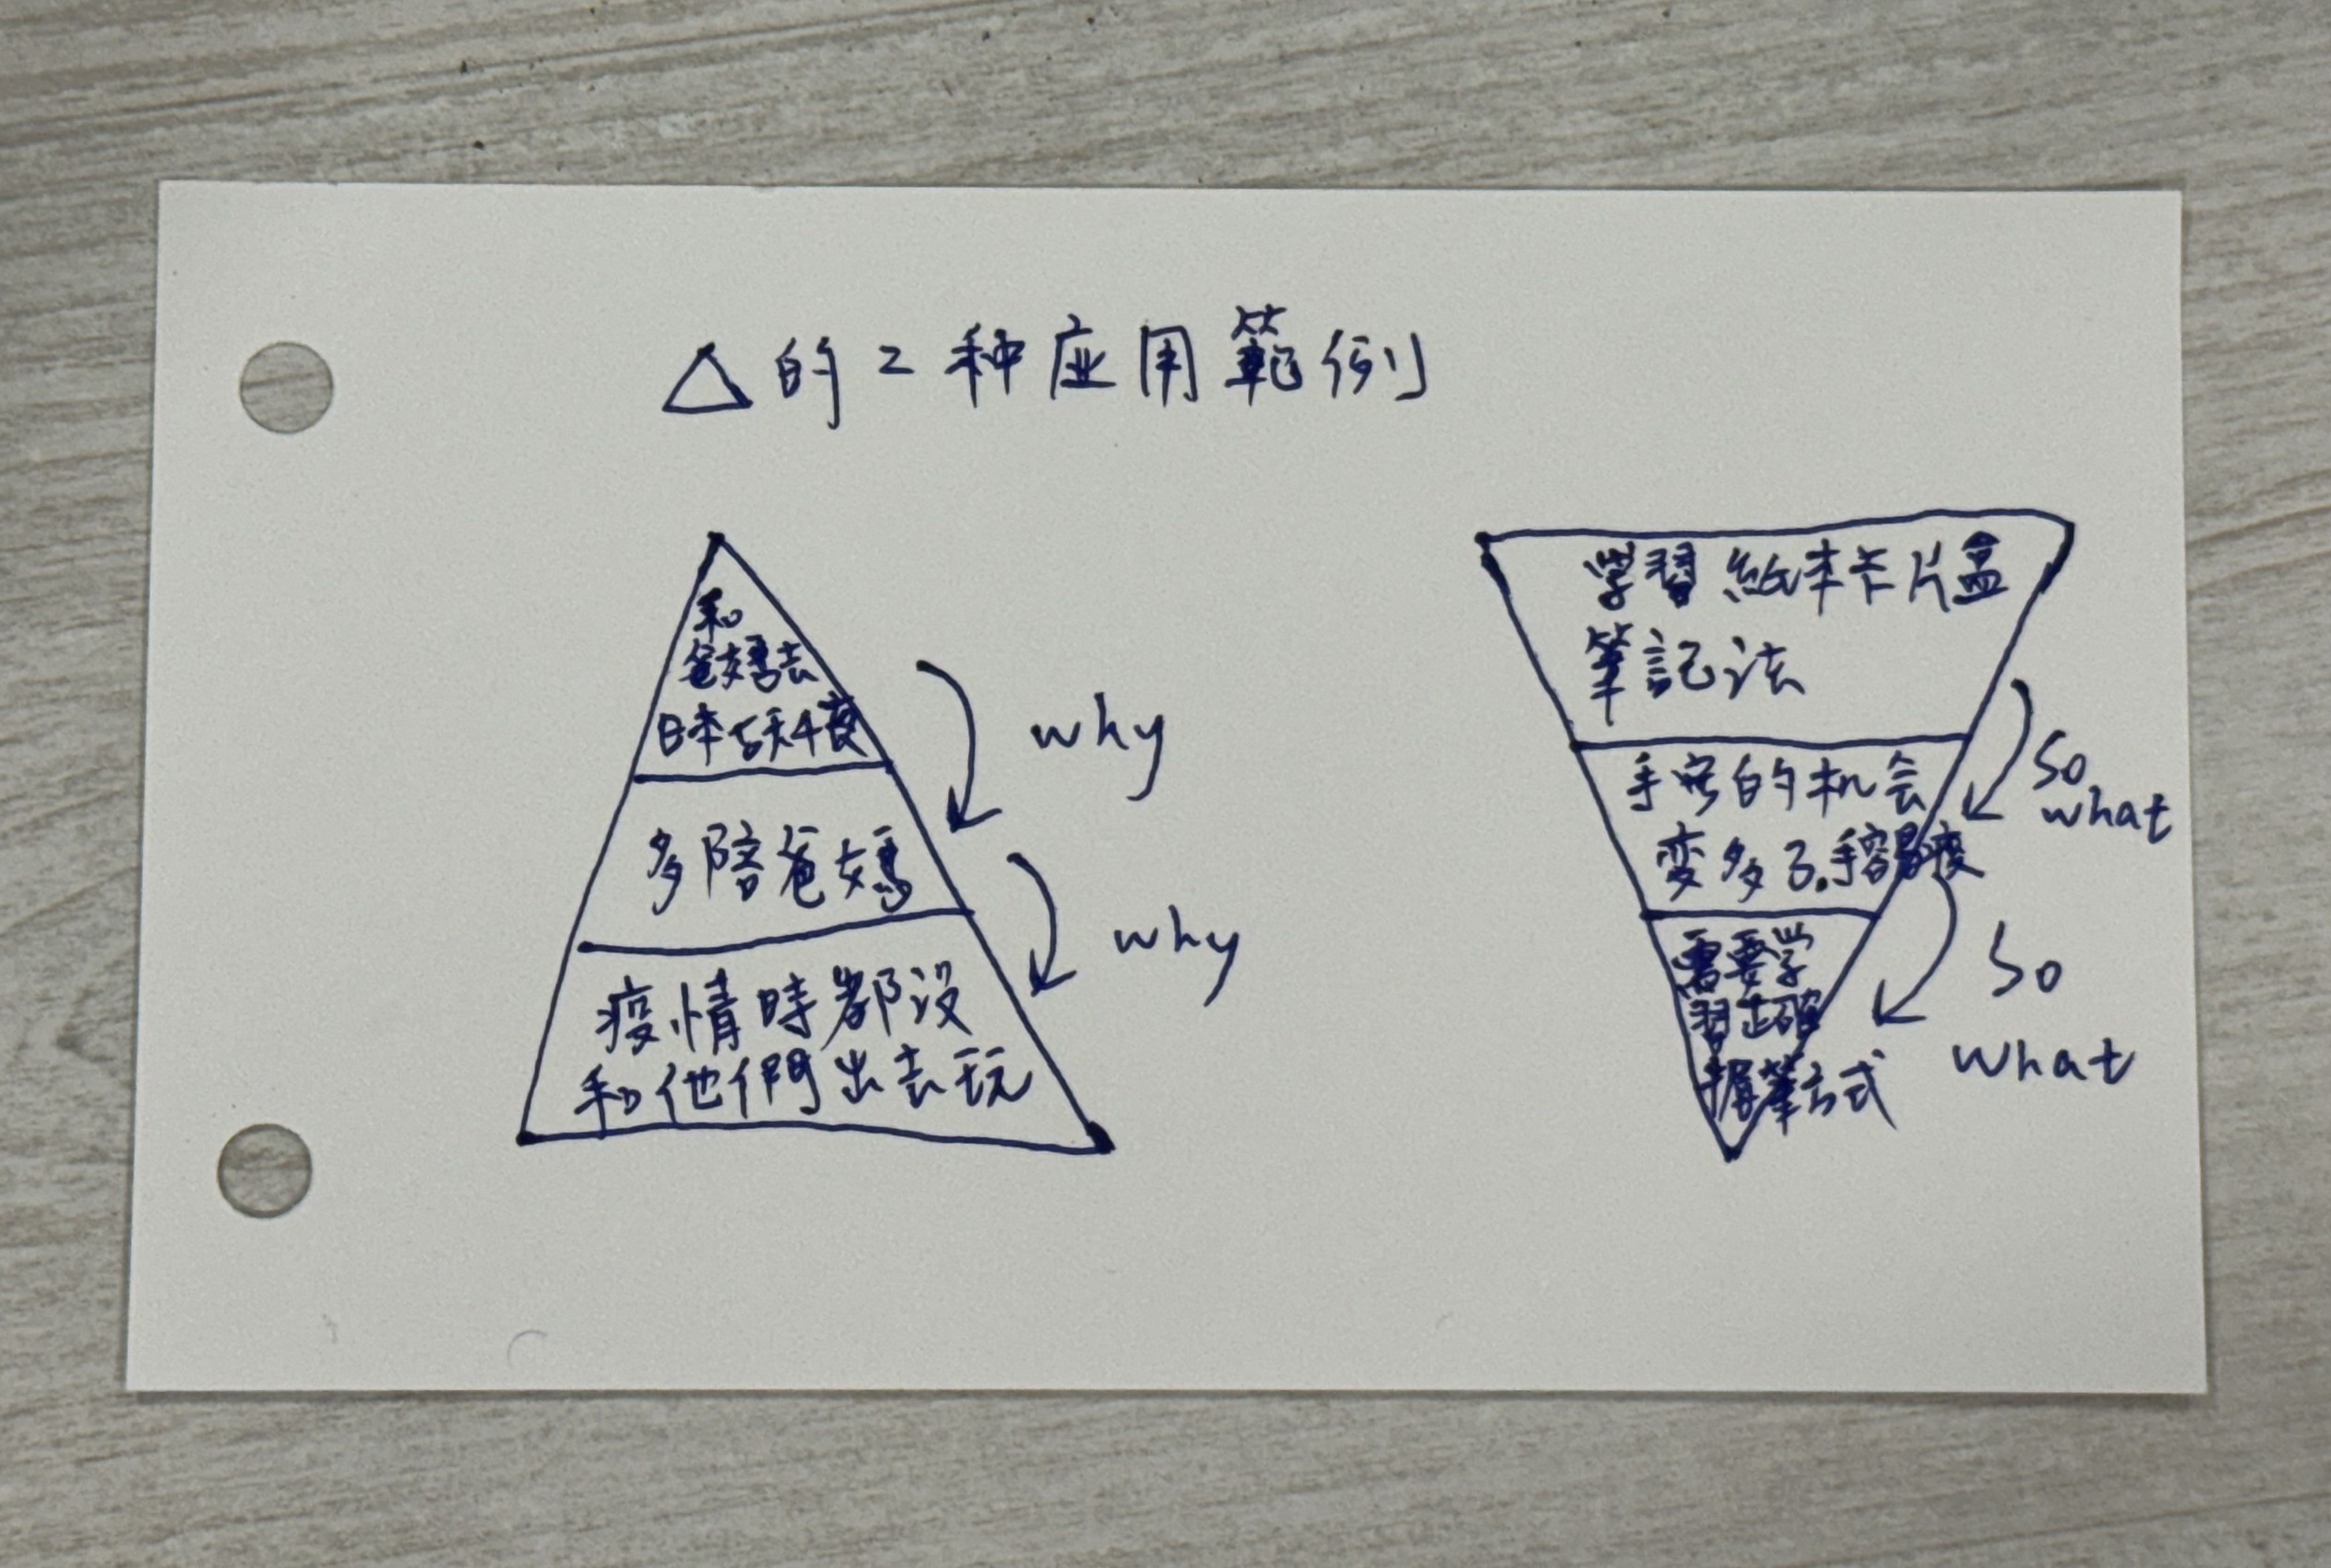 △的2种应用範例
和
爸媽去
日本5天4夜
why
多陪爸媽
why
疫情時都没
和他們出去玩
学習紙本卡片盒
筆記法
so
what
手写的机会
变多了,手容易痠
so
what
需要学
習正確
握筆方式